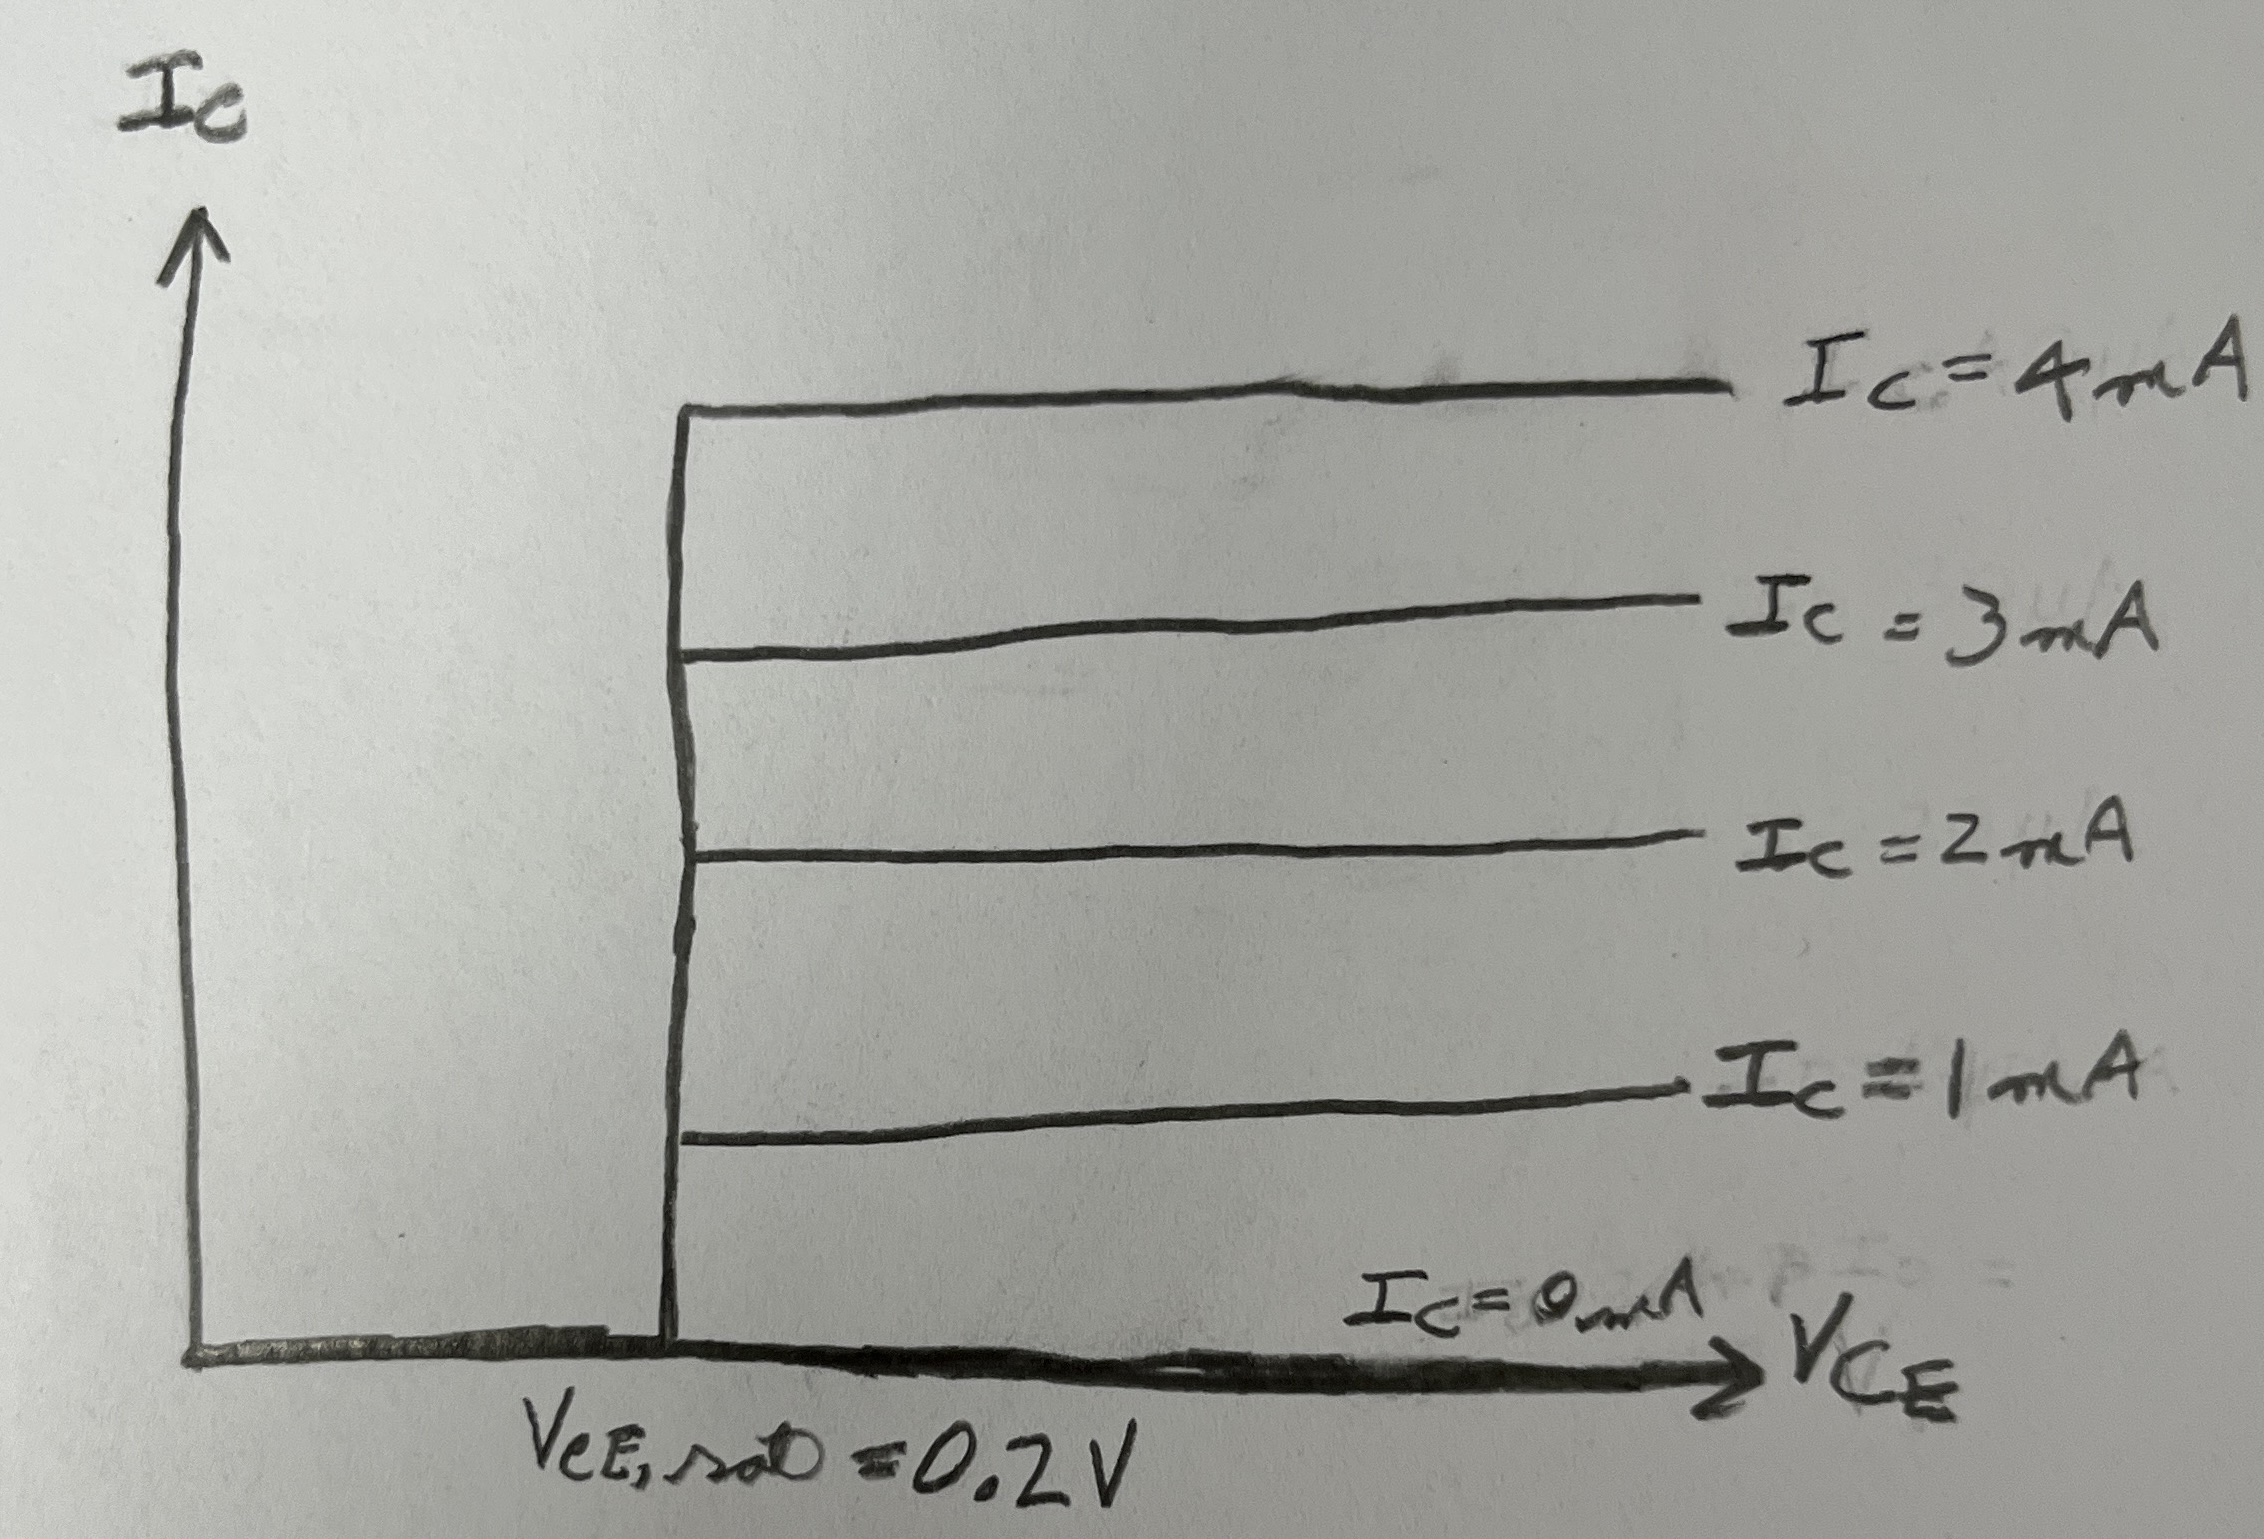 Ic
Ic = 4mA
Ic = 3mA
Ic = 2mA
Ic = 1mA
Ic = 0mA
VCE
VCE, sat = 0.2V